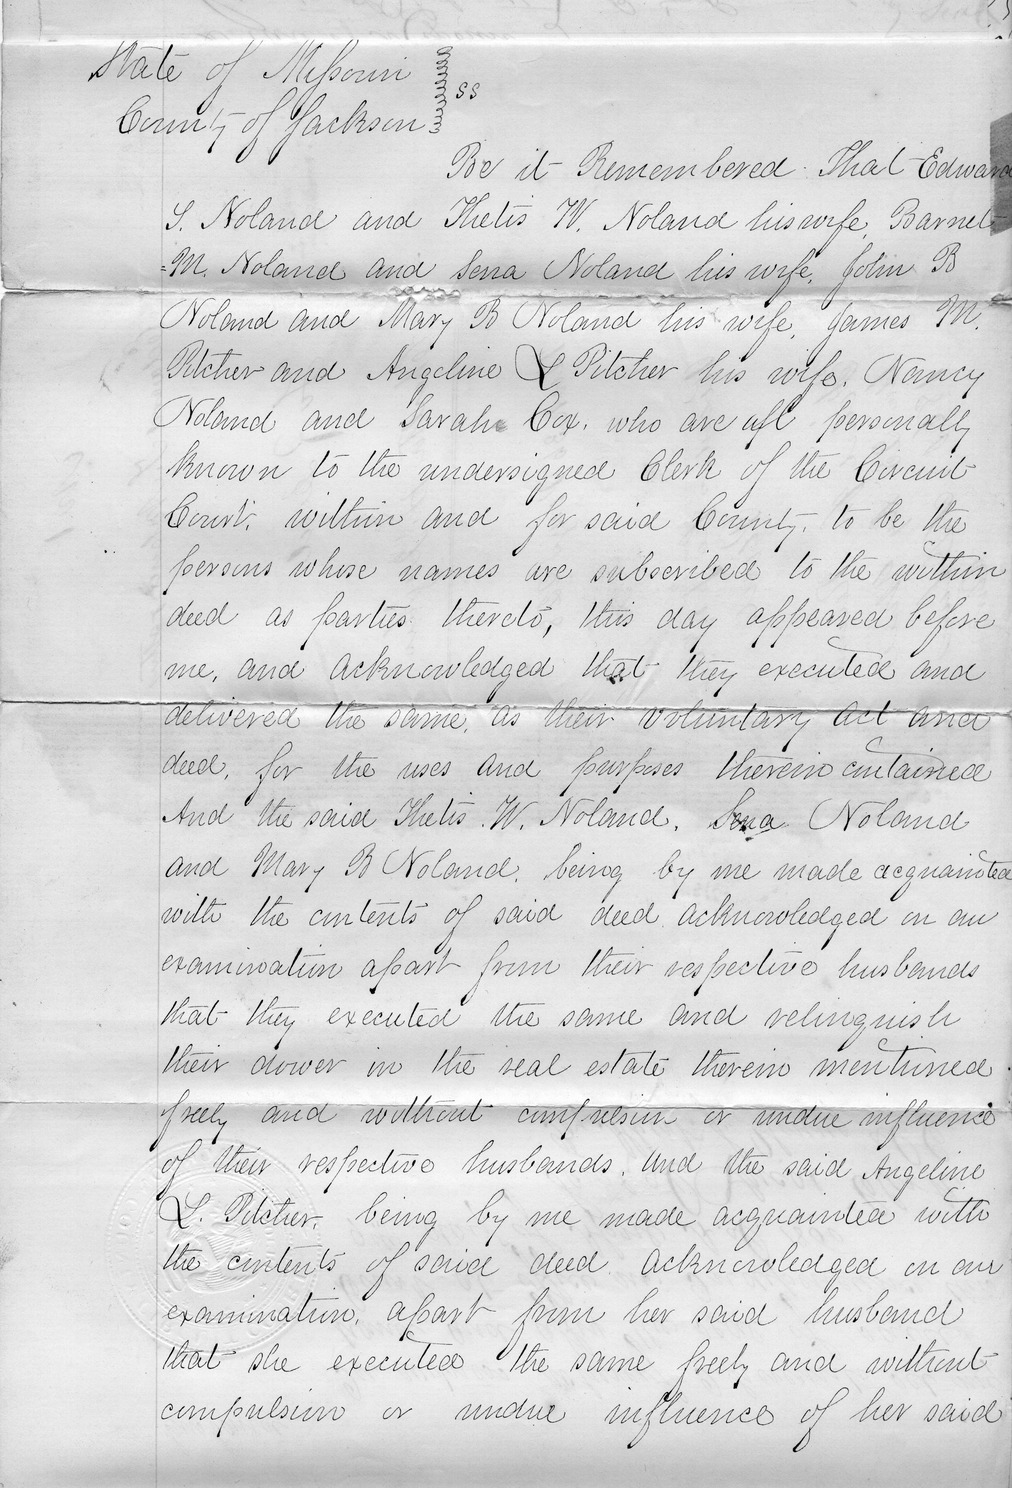 State of Missouri
County of Jackson } ss
Be it Remembered That Edward
S. Noland and Thetis W. Noland his wife, Barnet
=M. Noland and Sena Noland his wife, John B
Noland and Mary B Noland his wife, James M.
Pitcher and Angeline L Pitcher his wife, Nancy
Noland and Sarah Cox, who are all personally
known to the undersigned Clerk of the Circuit
Court, within and for said County, to be the
persons whose names are subscribed to the within
deed as parties thereto, this day appeared before
me, and acknowledged that they executed and
delivered the same, as their voluntary act and
deed, for the uses and purposes therein contained
And the said Thetis W. Noland, Sena Noland
and Mary B Noland, being by me made acquainted
with the contents of said deed acknowledged on an
examination apart from their respective husbands
that they executed the same and relinquish
their dower in the real estate therein mentioned
freely and without compulsion or undue influence
of their respective husbands, and the said Angeline
L. Pitcher, being by me made acquainted with
the contents of said deed acknowledged on an
examination, apart from her said husband
that she executed the same freely and without
compulsion or undue influence of her said